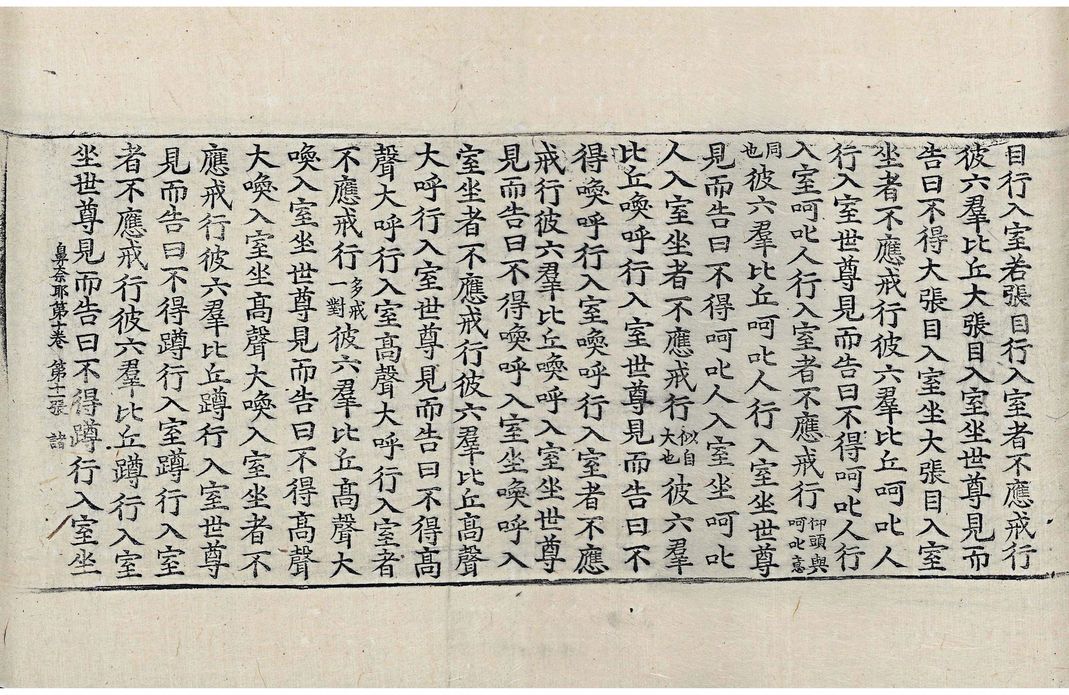 目行入室若張目行入室者不應戒行
彼六羣比丘大張目入室坐世尊見而
告曰不得大張目入室坐大張目入室
坐者不應戒行彼六羣比丘呵叱人
行入室世尊見而告曰不得呵叱人行
入室呵叱人行入室者不應戒行仰頭與呵叱意
同也彼六羣比丘呵叱人行入室坐世尊
見而告曰不得呵叱人入室坐呵叱
人入室坐者不應戒行似自大也彼六羣
比丘喚呼行入室世尊見而告曰不
得喚呼行入室喚呼行入室者不應
戒行彼六羣比丘喚呼入室坐世尊
見而告曰不得喚呼入室坐喚呼入
室坐者不應戒行彼六羣比丘高聲
大呼行入室世尊見而告曰不得高
聲大呼行入室高聲大呼行入室者
不應戒行多戒一對彼六羣比丘高聲大
喚入室坐世尊見而告曰不得高聲
大喚入室坐高聲大喚入室坐者不
應戒行彼六羣比丘蹲行入室世尊
見而告曰不得蹲行入室蹲行入室
者不應戒行彼六羣比丘蹲行入室
坐世尊見而告曰不得蹲行入室坐
鼻奈耶第十卷 第十二張 諸